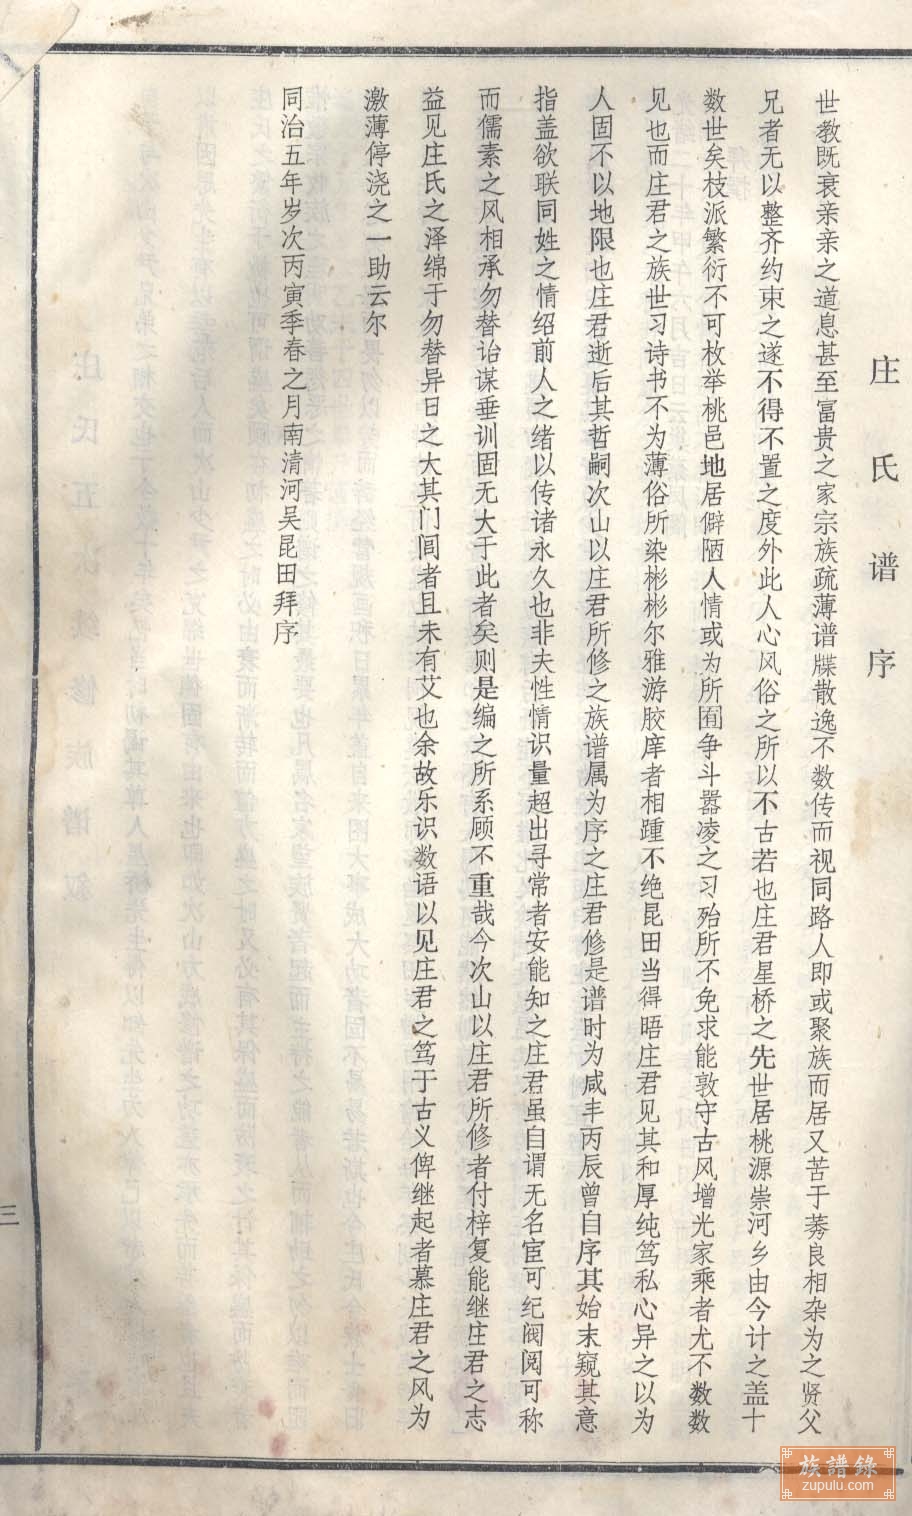 庄氏谱序
世教既衰亲亲之道息甚至富贵之家宗族疏薄谱牒散逸不数传而视同路人即或聚族而居又苦于莠良相杂为之贤父
兄者无以整齐约束之遂不得不置之度外此人心风俗之所以不古若也庄君星桥之先世居桃源崇河乡由今计之盖十
数世矣枝派繁衍不可枚举桃邑地居僻陋人情或为所囿争斗嚣凌之习殆所不免求能敦守古风增光家乘者尤不数数
见也而庄君之族世习诗书不为薄俗所染彬彬尔雅游胶庠者相踵不绝昆田当得晤庄君见其和厚纯笃私心异之以为
人固不以地限也庄君逝后其哲嗣次山以庄君所修之族谱属为序之庄君修是谱时为咸丰丙辰曾自序其始末窥其意
指盖欲联同姓之情绍前人之绪以传诸永久也非夫性情识量超出寻常者安能知之庄君虽自谓无名宦可纪阀阅可称
而儒素之风相承勿替诒谋垂训固无大于此者矣则是编之所系顾不重哉今次山以庄君所修者付梓复能继庄君之志
益见庄氏之泽绵于勿替异日之大其门闾者且未有艾也余故乐识数语以见庄君之笃于古义俾继起者慕庄君之风为
激薄停浇之一助云尔
同治五年岁次丙寅季春之月南清河吴昆田拜序
三
族譜錄
zupulu.com